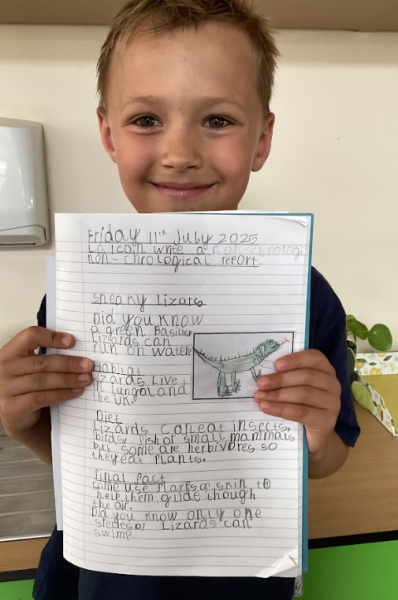 Friday 11th July 2025
Lo. I can write a non-chrological
non-chrological report.
sneaky lizards
Did you know
a green basilisk
lizards can
run on water
Habitat
lizards live
in England and
the UK.
Diet
Lizards can eat insects,
birds, fish or small mammals
but some are herbivores so
they eat plants.
final fact
some use flaps of skin to
help them glide though
the air.
Did you know only one
of lizards can
swim?